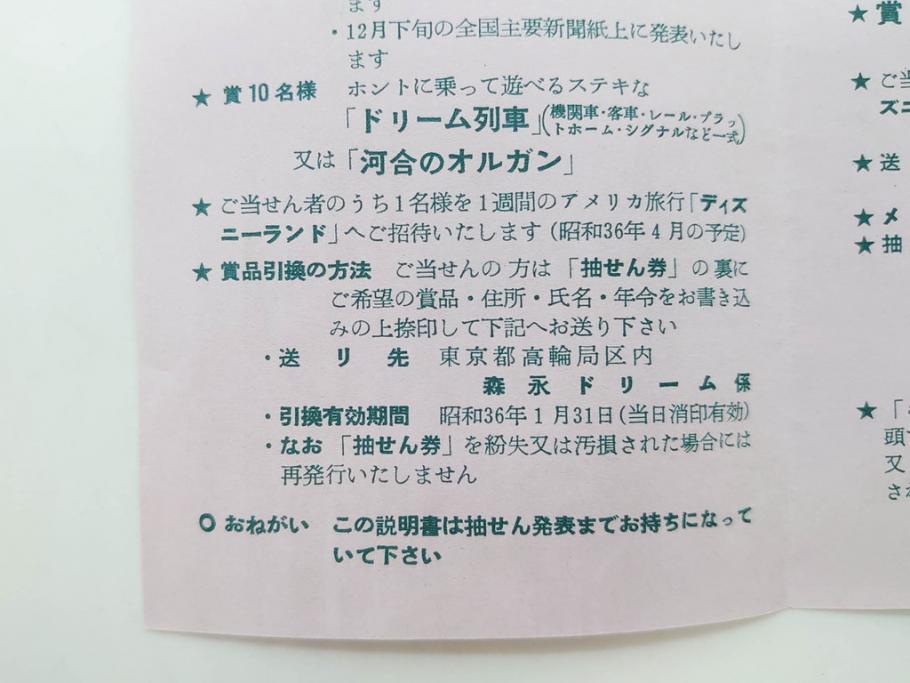 ます
・12月下旬の全国主要新聞紙上に発表いたし
ます
★ 賞10名様 ホントに乗って遊べるステキな
「ドリーム列車」(機関車・客車・レール・プラッ
トホーム・シグナルなど一式)
又は「河合のオルガン」
★ ご当せん者のうち1名様を1週間のアメリカ旅行「ディズ
ニーランド」へご招待いたします(昭和36年4月の予定)
★ 賞品引換の方法 ご当せんの方は「抽せん券」の裏に
ご希望の賞品・住所・氏名・年令をお書き込
みの上捺印して下記へお送り下さい
・送り先 東京都高輪局区内
森永ドリーム係
・引換有効期間 昭和36年1月31日(当日消印有効)
・なお「抽せん券」を紛失又は汚損された場合には
再発行いたしません
○ おねがい この説明書は抽せん発表までお持ちになって
いて下さい
★ 賞
★ ご当
ズニ
★ 送
★ メ
★ 抽
★ 「
頭
又
さ